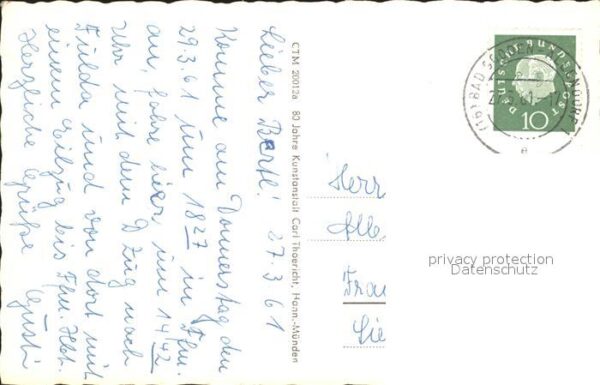 Lieber Bertl! 27.3.61
Komme am Donnerstag den
29.3.61 um 18 27 in Ffm.
an, fahre hier, um 14 42
Uhr mit dem D Zug nach
Fulda und von dort mit
einem Eilzug bis Ffm. Hbh.
Herzliche Grüße Gusti
CTM 20012a 80 Jahre Kunstanstalt Carl Thoericht, Hann.-Münden
(16) BAD SOODEN-ALLENDORF
27.3.61
a
DEUTSCHE BUNDESPOST
10
Herr
Albe
Fran
Sie
privacy protection
Datenschutz